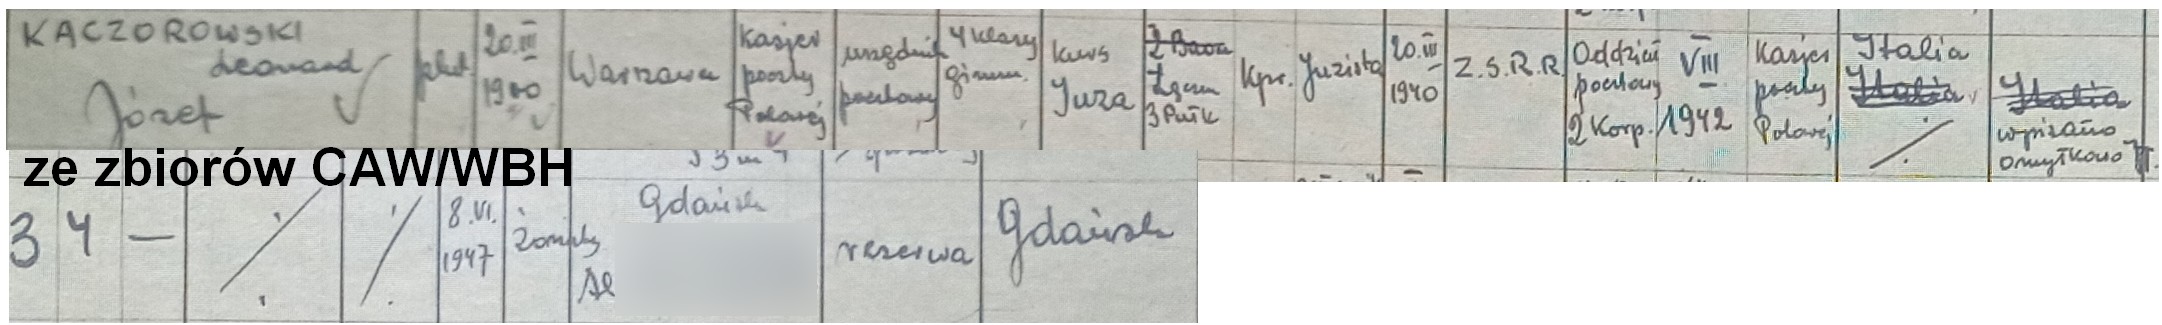 KACZOROWSKI
Leonard
Józef
plut.
20.III
1940
Warszawa
Kasjer
poczty
Polowej
urzędnik
pocztowy
4 klasy
gimn.
kurs
Juza
2 Baon
Łącn
3 Pułk
Kpr.
Juzista
20.III
1940
Z.S.R.R
Oddział
pocztowy
2 Korp.
VIII
1942
Kasjer
poczty
Polowej
Italia
Italia
Italia
wpisano
omyłkowo
ze zbiorów CAW/WBH
3 4 —
8.VI.
1947
żonaty
Gdańsk
Al
rezerwa
Gdańsk